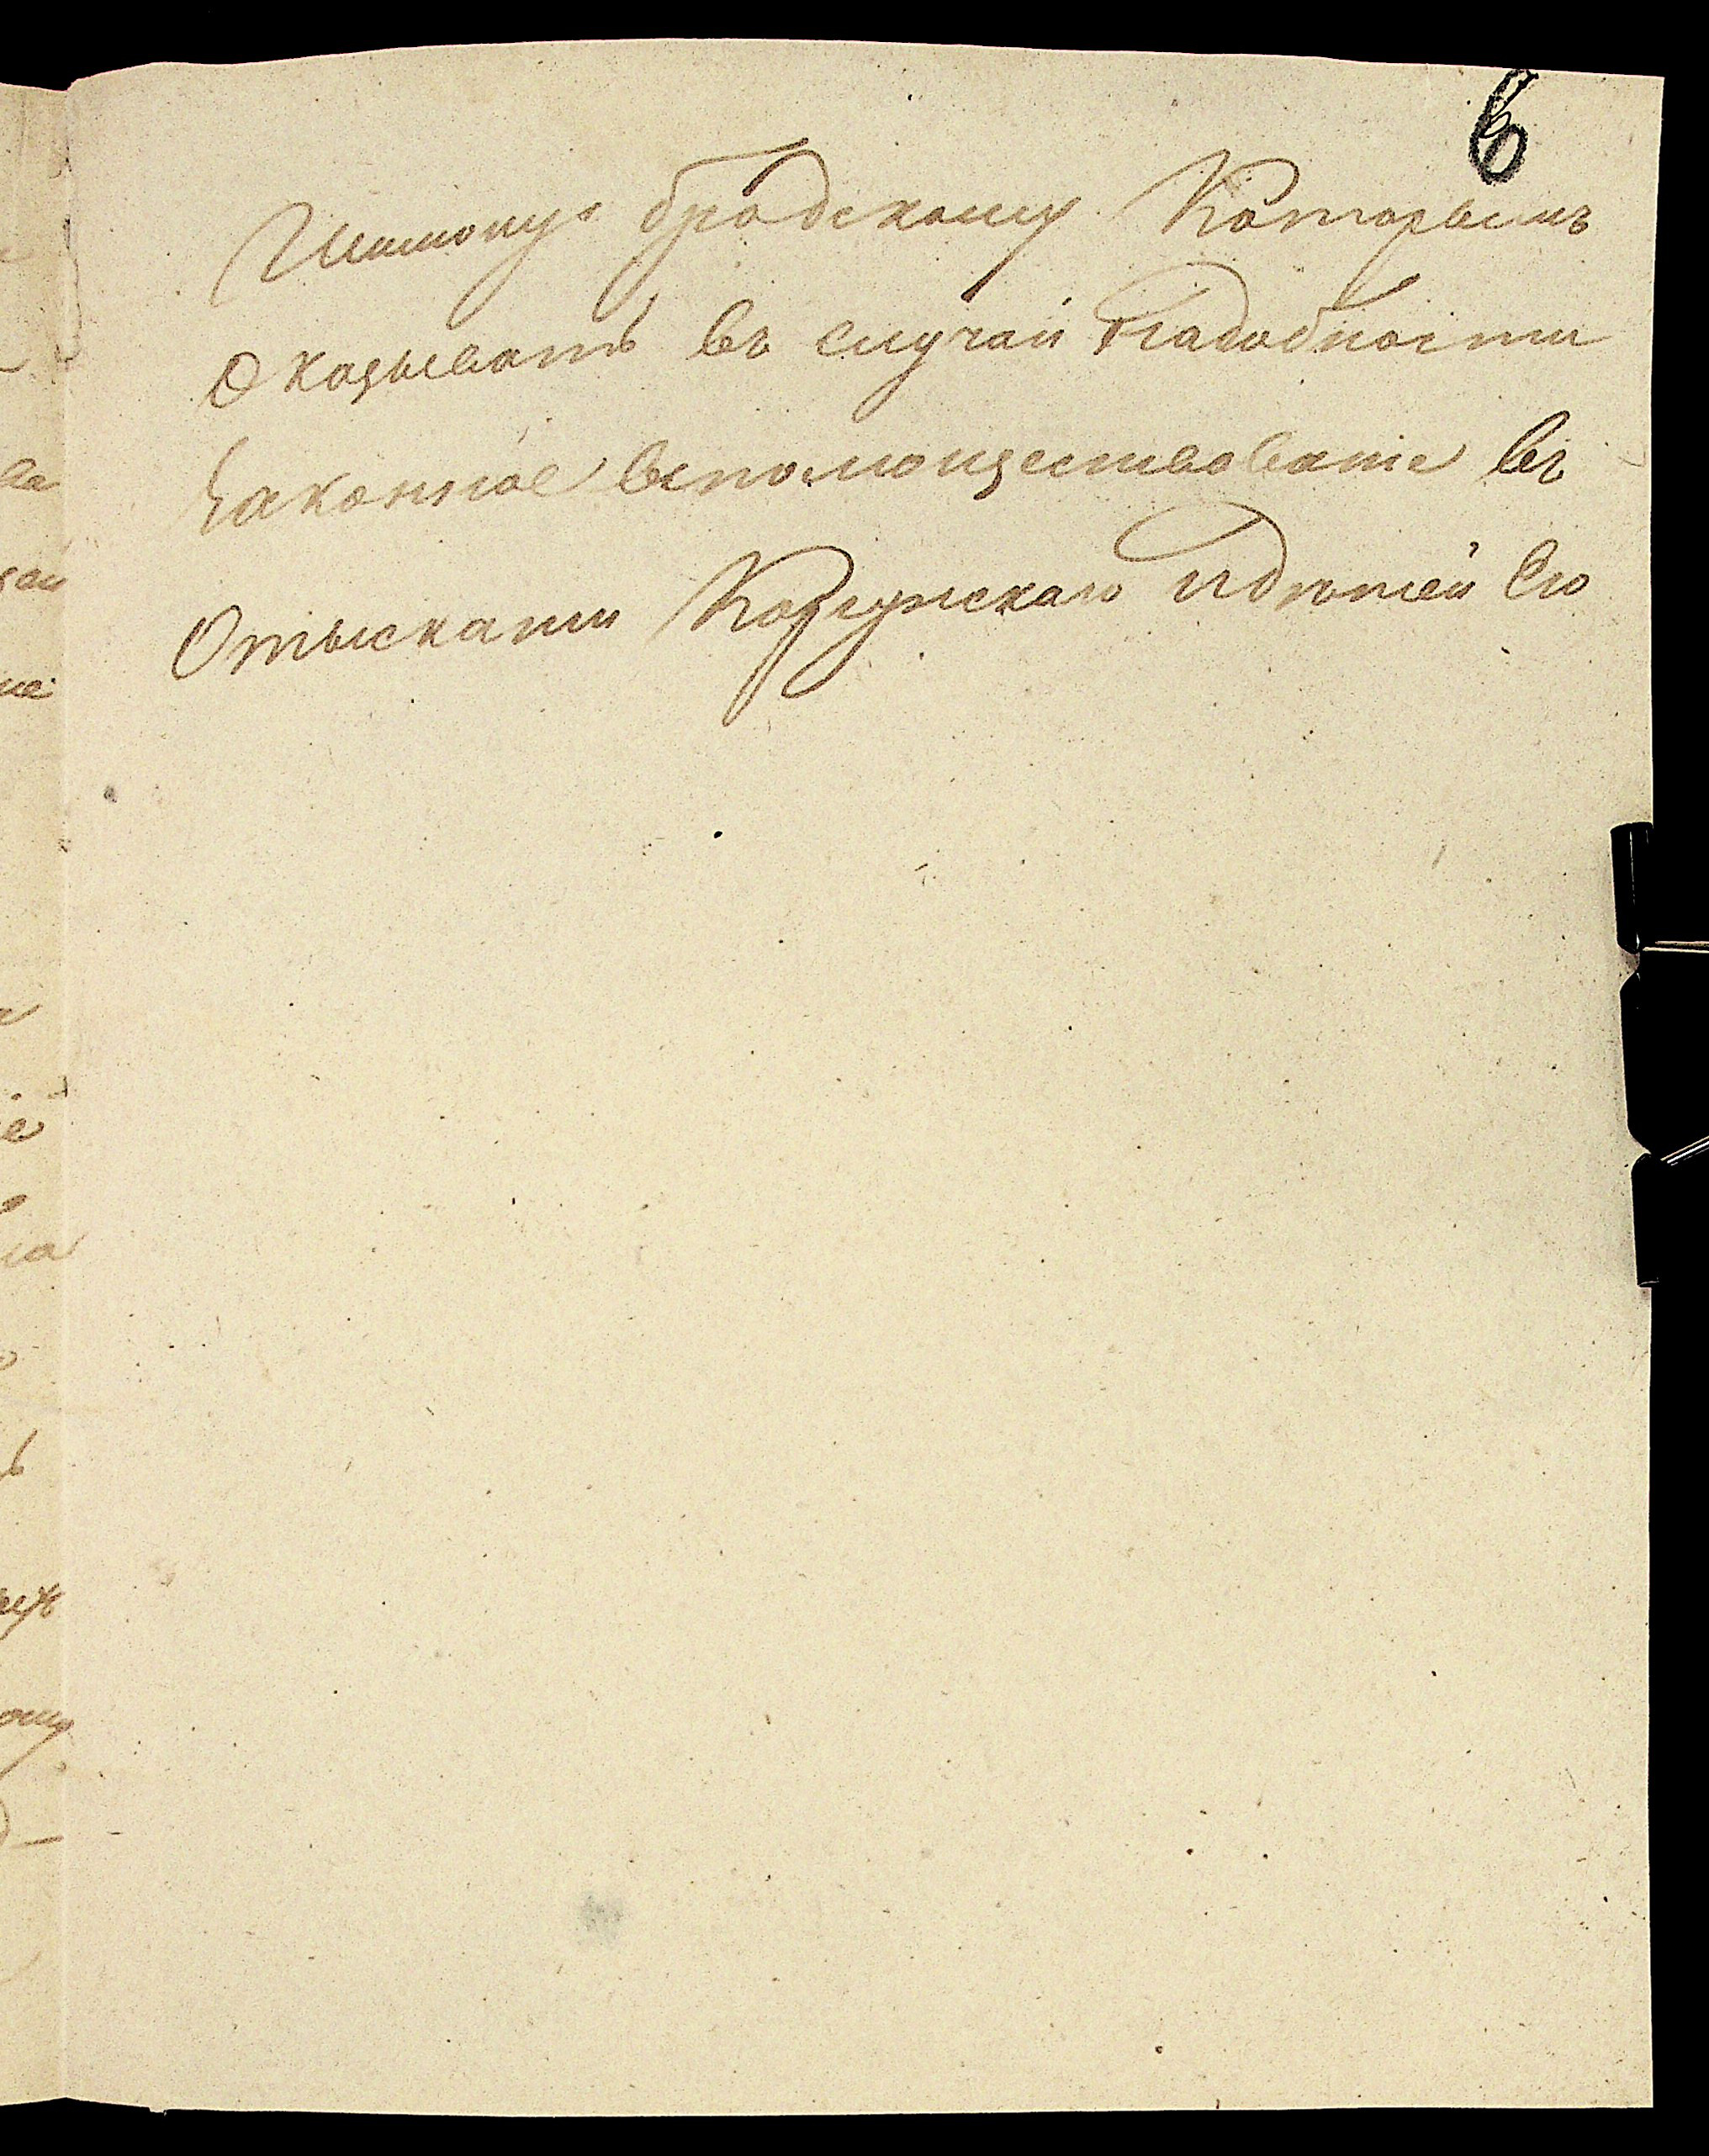 6
Шимону бродскому Которымъ
Оказывать въ случаи Надобности
Законное вспомоществование въ
Отыскании Корсунскаго идѣтей Его